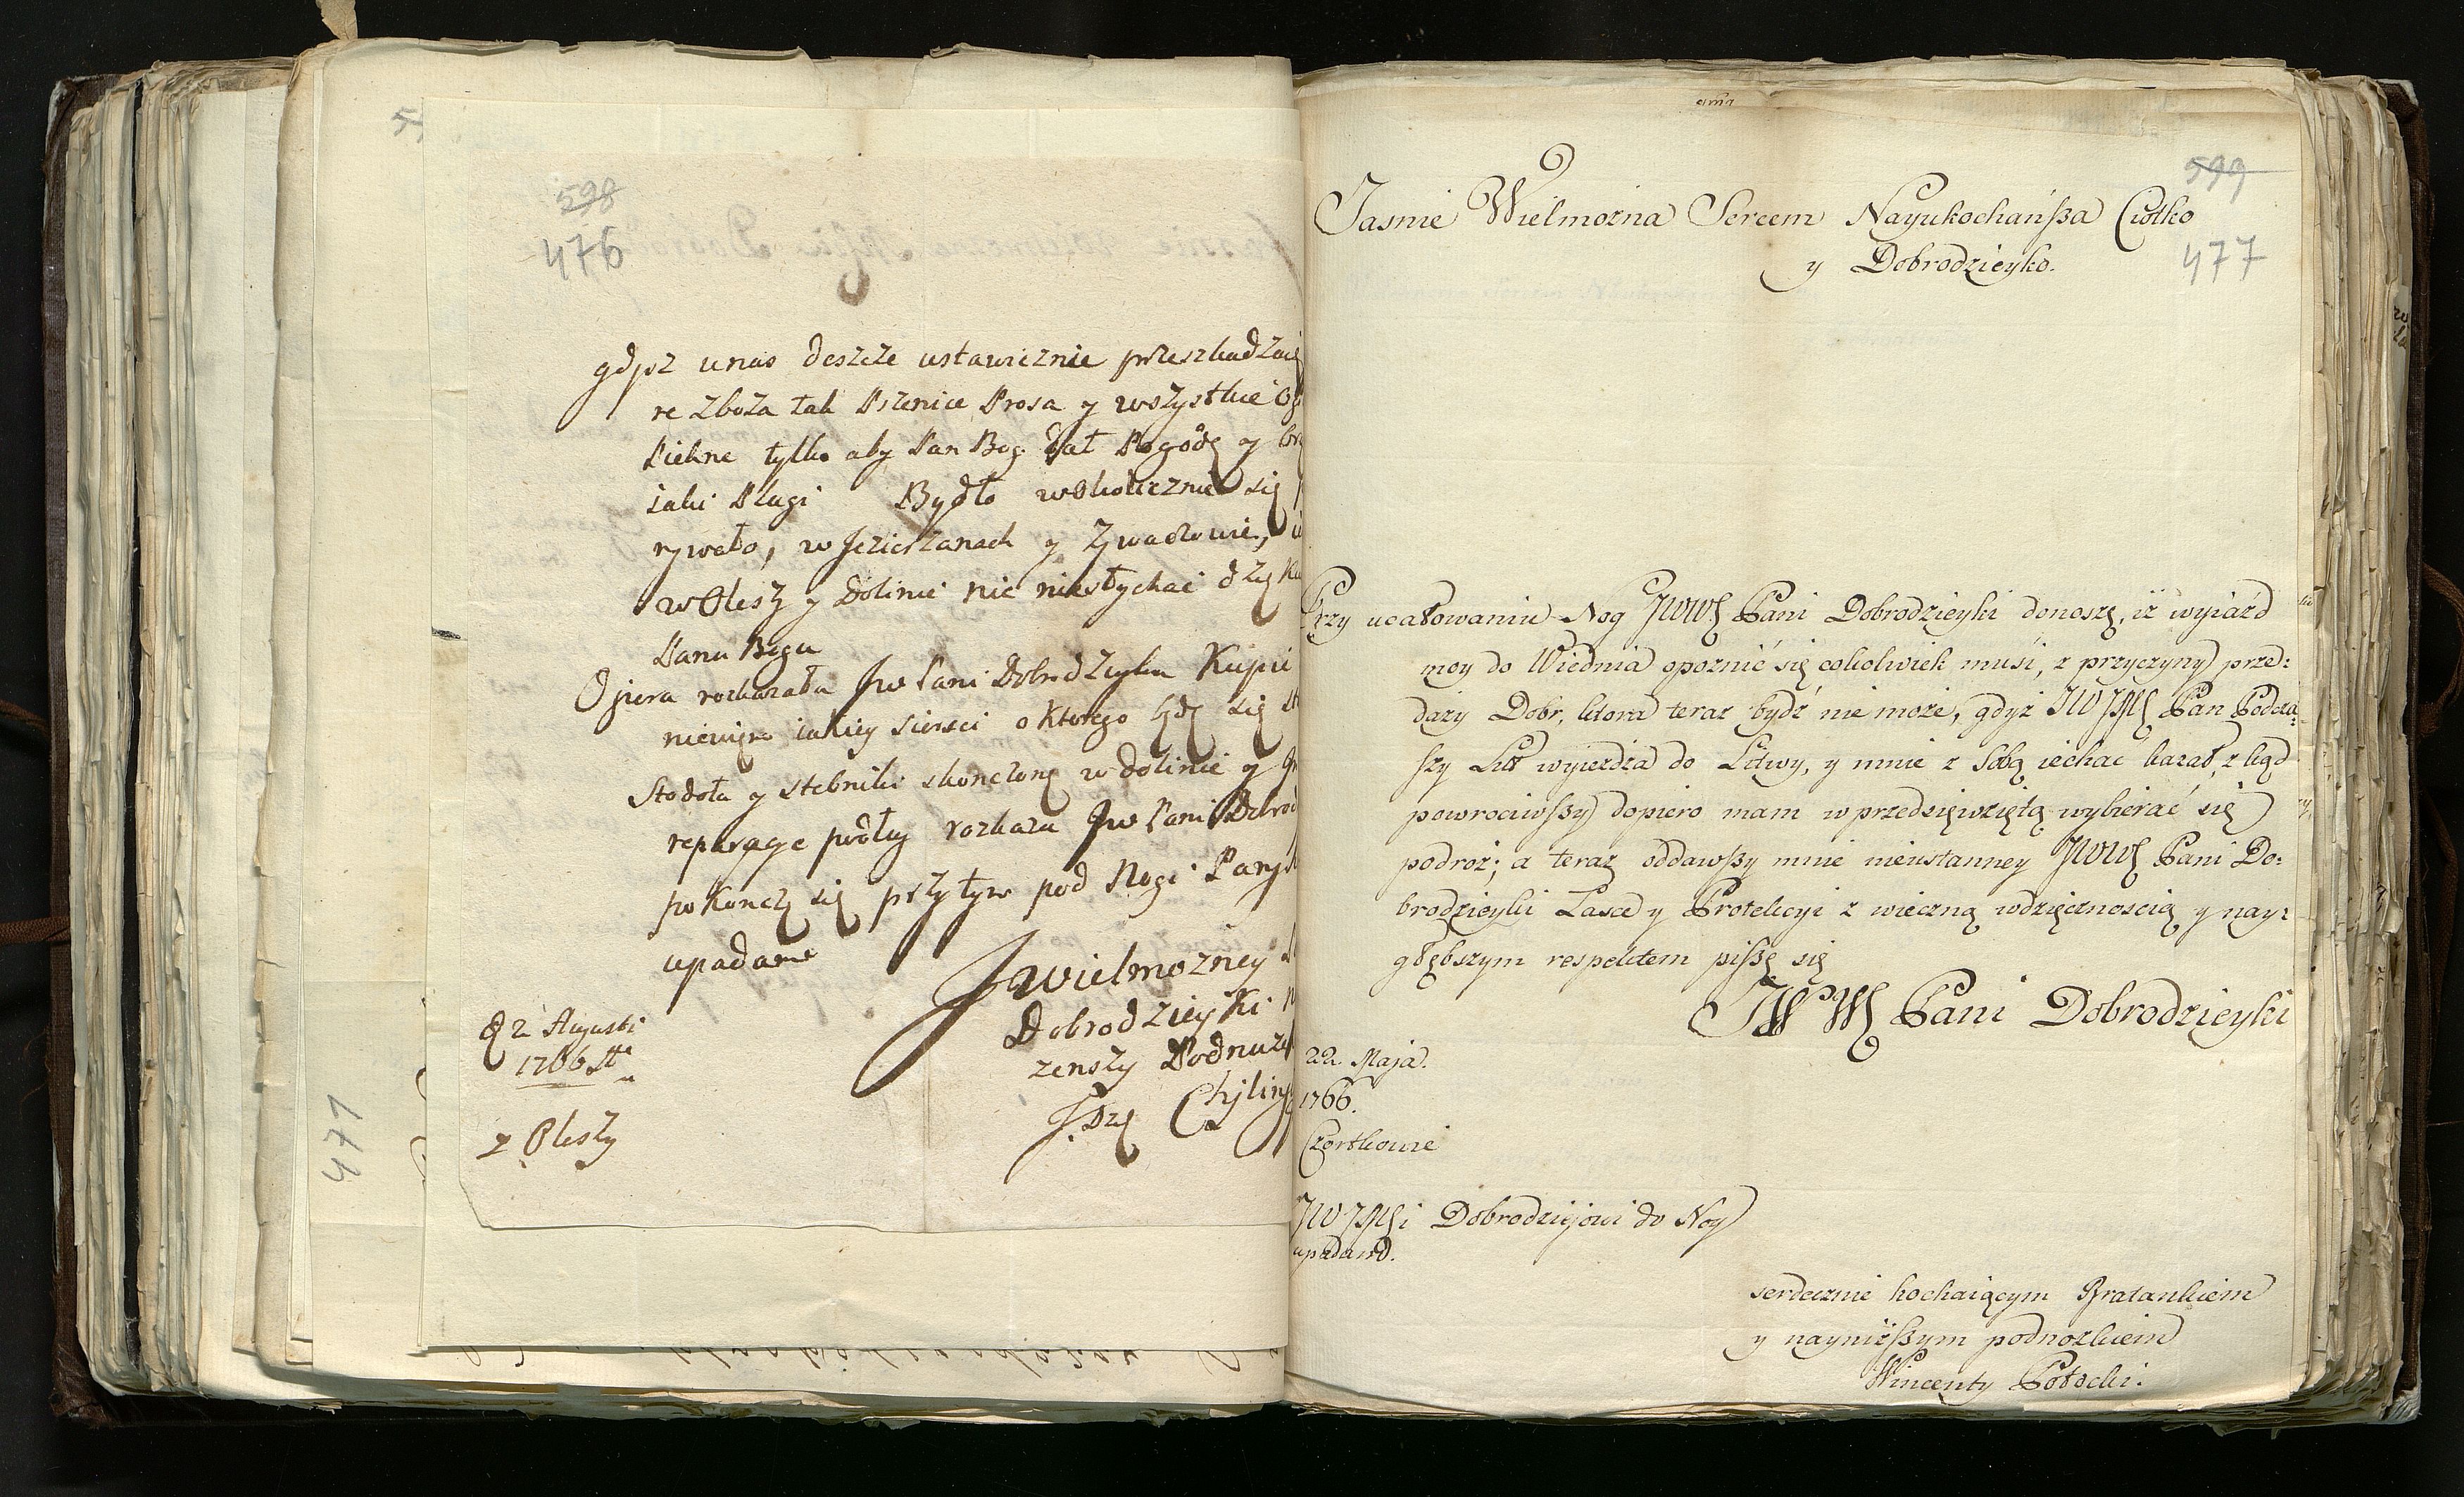 598
476
gdysz unas deszcze ustawicznie przeszkadzaią
re zboża tak Pszenice Prosa y wszystkie
Piekne tylko aby Pan Bog dał Pogodę y
iaki Długi Bydło wOkolicznie się
rywało, w Jezierzanach y Zywaczowie,
wOleszy y Dolinie nic niesłychać dzę
Panu Bogu
Ogiera rozkazała Jw Pani Dobrodzyka Kupić
niewięm iakiey sierści o Ktorego będę się
Stodoła y stebniki skonczoną w dolinie y
reparacye podług rozkazu Jw Pani Dobrod
pokonczą się przy tym pod Nogi
upadame
Jwielmozney
Dobrodzieyki
zenszy Podnuże
Chyliń
D 2 Augusti
1766
z Oleszy
477
599
477
Jasnie Wielmożna Sercem Nayukochańßa Ciotko
y Dobrodzieyko.
Przy ucałowaniu Nog JWWẞ Pani Dobrodzieyki donoszę, iż wyiazd
moy do Wiednia opoznić się cokolwiek musi, z przyczyny przed:
daży Dobr, ktora teraz bydź nie może, gdyż JWJMẞ Pan Podcza:
szy Litt wyieżdża do Litwy, y mnie z Sobą iechać kazał, z kąd
powrociwßy dopiero mam w przedsięwziętą wybierać się
podroż; a teraz oddawßy mnie nieustanney JWWẞ Pani Do:
brodzieyki Łasce y Protekcyi z wieczną wdzięcznoscią y nay:
głębszym respektem pißę się
JWWẞ Pani Dobrodzieyki
22. Maja.
1766.
Czortkowie
JWJMẞi Dobrodziejowi do Nog
upadam.
serdecznie kochaiącym Bratankiem
y nayniżßym podnozkiem
Wincenty Potocki.